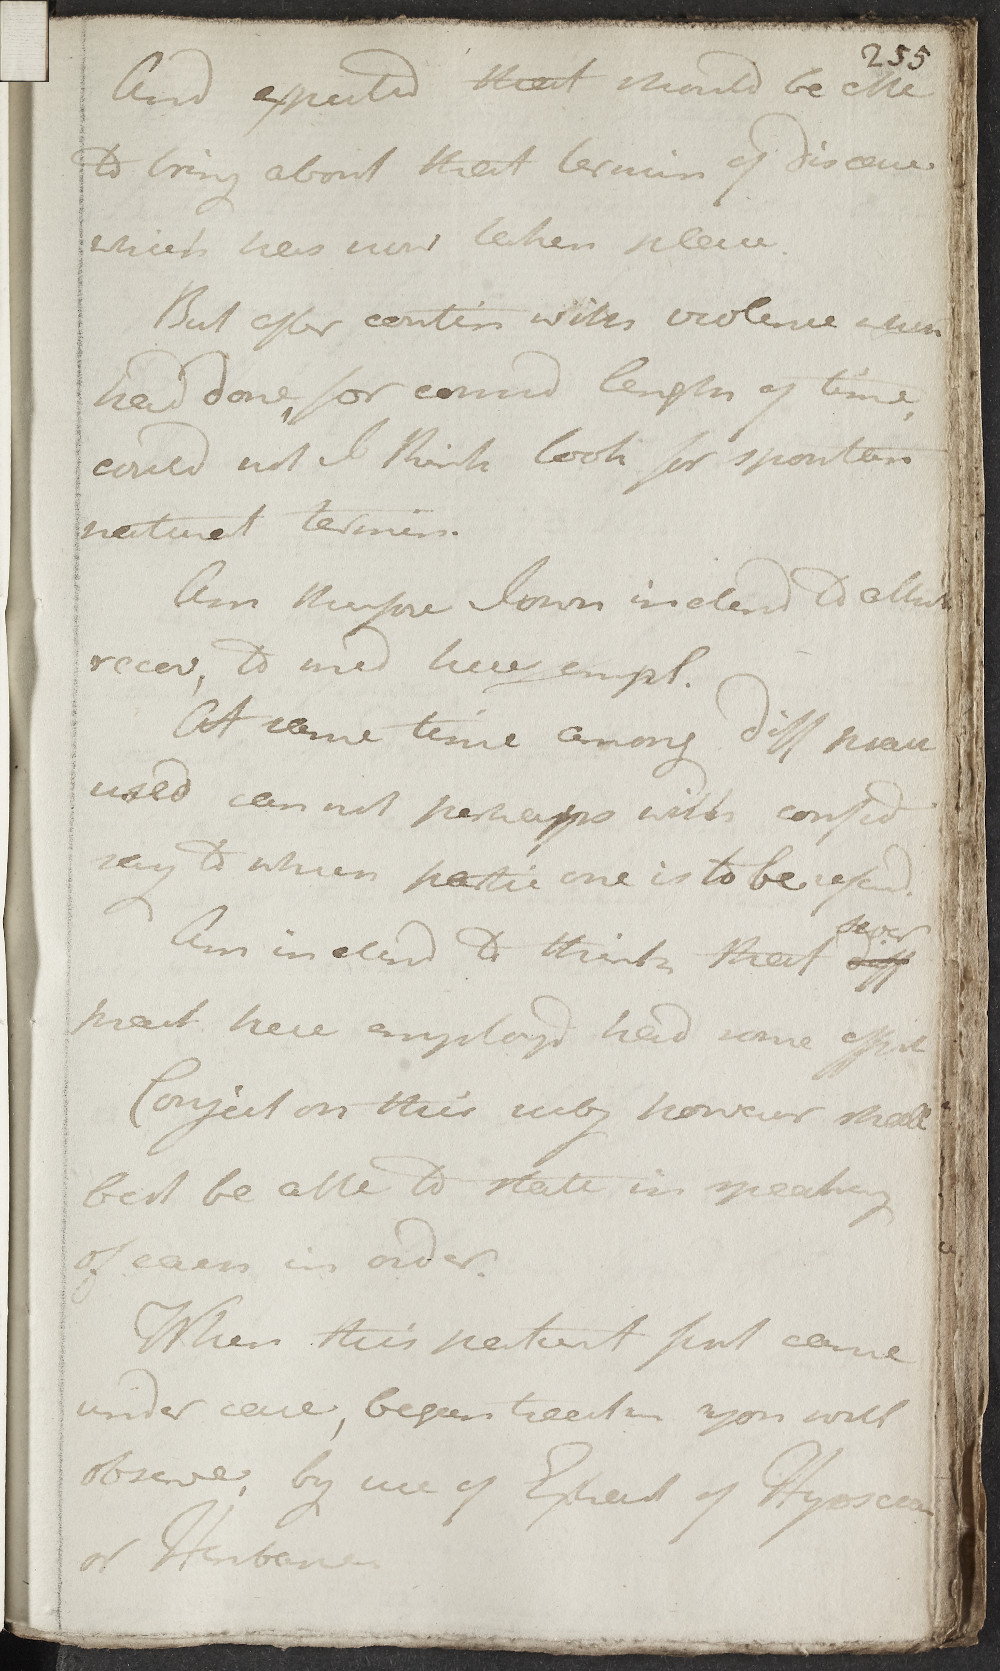 255
And expected that should be able
to bring about that termin of disease
which has now taken place.
But after contin with violence when
had done, for consid length of time,
could not I think look for spontan
natural termin.
Am therefore I own inclend to attrib
recov, to med here empl.
At same time among diff prac
used can not perhaps with confid
say to when partic one is to be refend.
Am inclend to think that sever
diff
pract here employd had some effect
Conject on this subj however shall
best be able to state in speaking
of each in order.
When this patient first came
under care, began treatm you will
observe, by use of Extract of Hyosciam
or Henbane.